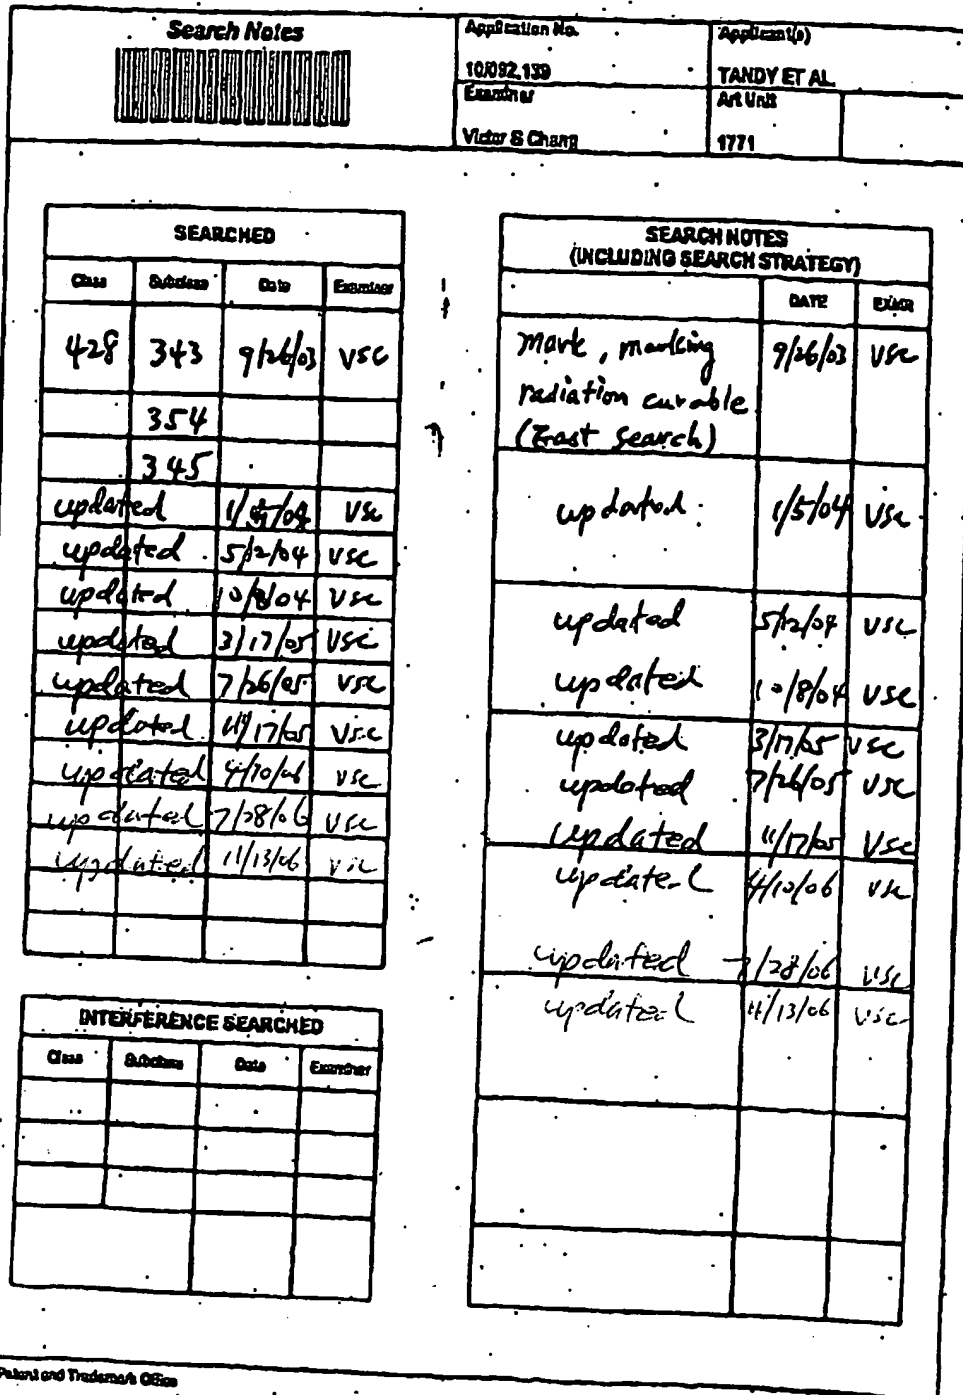 Search Notes
Application No.
Applicant(s)
10/092,139
TANDY ET AL.
Examiner
Art Unit
Victor S Chang
1771
SEARCHED
Class Subclass Date Examiner
428 343 9/26/03 VSC
354
345
updated 1/5/04 VSC
updated 5/12/04 VSC
updated 10/8/04 VSC
updated 3/17/05 VSC
updated 7/26/05 VSC
updated 11/17/05 VSC
updated 4/10/06 VSC
updated 7/28/06 VSC
updated 11/13/06 VSC
INTERFERENCE SEARCHED
Class Subclass Date Examiner
SEARCH NOTES
(INCLUDING SEARCH STRATEGY)
DATE EXMR
mark, marking 9/26/03 VSC
radiation curable
(East search)
updated 1/5/04 VSC
updated 5/12/04 VSC
updated 10/8/04 VSC
updated 3/17/05 VSC
updated 7/26/05 VSC
updated 11/17/05 VSC
updated 4/10/06 VSC
updated 7/28/06 VSC
updated 11/13/06 VSC
Patent and Trademark Office